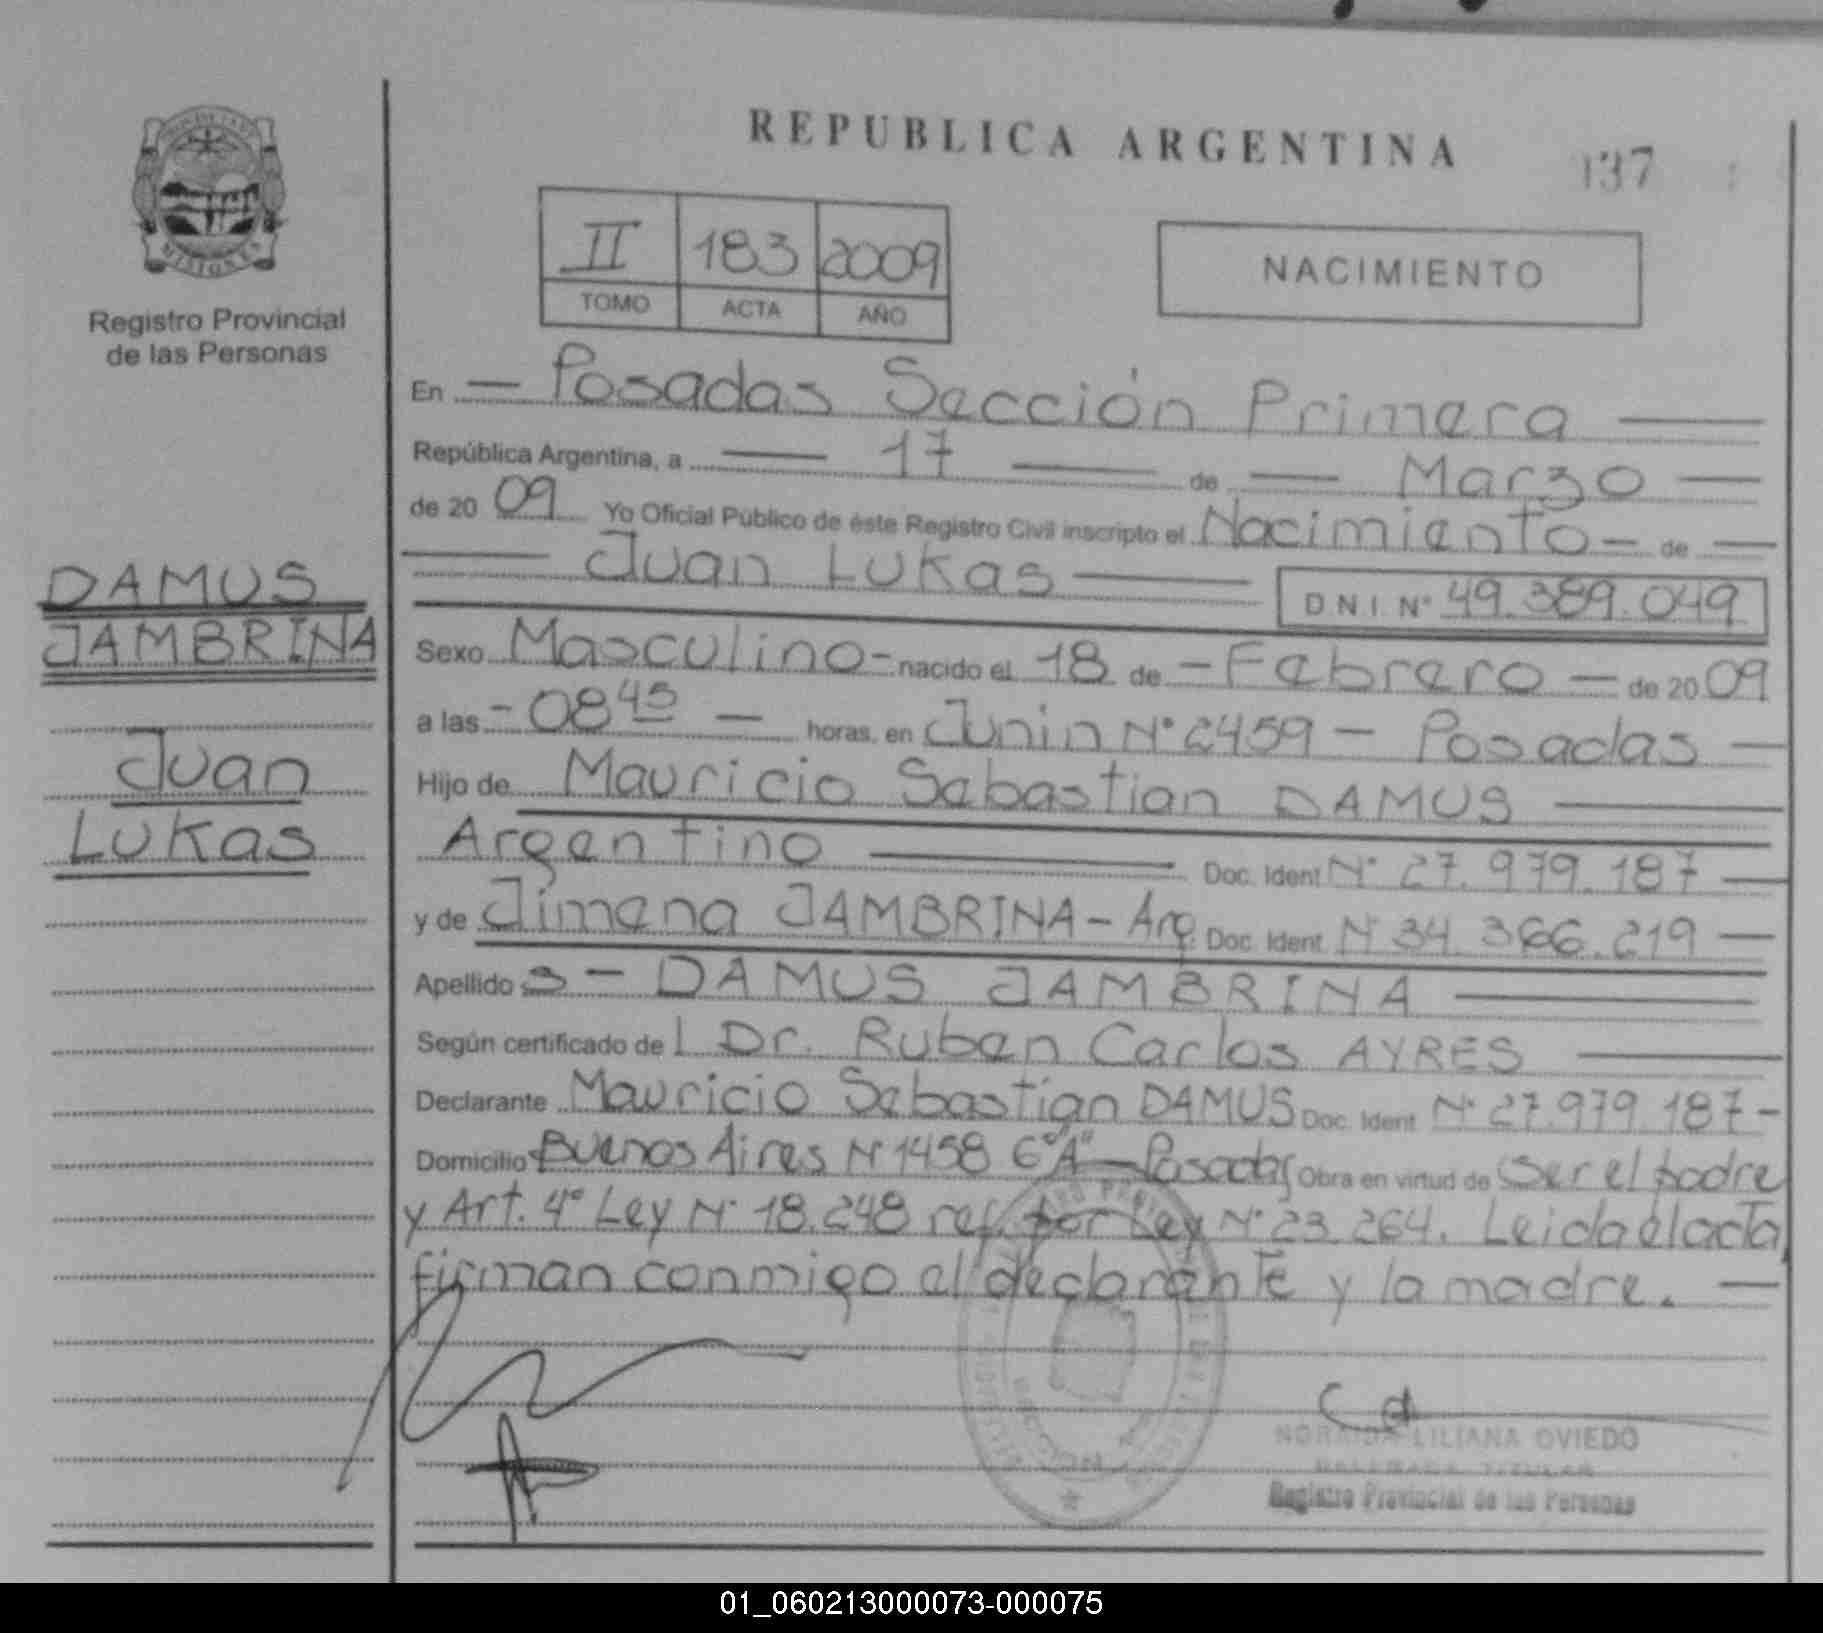 REPUBLICA ARGENTINA
137
PROVINCIA DE
MISIONES
Registro Provincial
de las Personas
II 183 2009
TOMO ACTA AÑO
NACIMIENTO
En — Posadas Sección Primera —
República Argentina, a — 17 — de — Marzo —
de 20 09 Yo Oficial Público de éste Registro Civil inscripto el Nacimiento — de —
— Juan Lukas — D.N.I. Nº 49.389.049
DAMUS
JAMBRINA
Juan
Lukas
Sexo Masculino - nacido el 18 de - Febrero — de 20 09
a las - 08 45 — horas, en Junin Nº 2459 — Posadas —
Hijo de Mauricio Sebastian DAMUS —
Argentino — Doc. Ident Nº 27.979.187 —
y de Jimena JAMBRINA - Arg. Doc. Ident. Nº 34.366.219 —
Apellido s — DAMUS JAMBRINA —
Según certificado de l Dr. Ruben Carlos AYRES —
Declarante Mauricio Sebastian DAMUS Doc. Ident Nº 27.979.187 -
Domicilio Buenos Aires Nº 1458 6º "A" — Posadas Obra en virtud de Ser el padre
y Art. 4º Ley Nº 18.248 ref. por Ley Nº 23.264. Leida el acta,
firman conmigo el declarante y la madre. —
NORAIDA LILIANA OVIEDO
DELEGADA TITULAR
Registro Provincial de las Personas
01_060213000073-000075